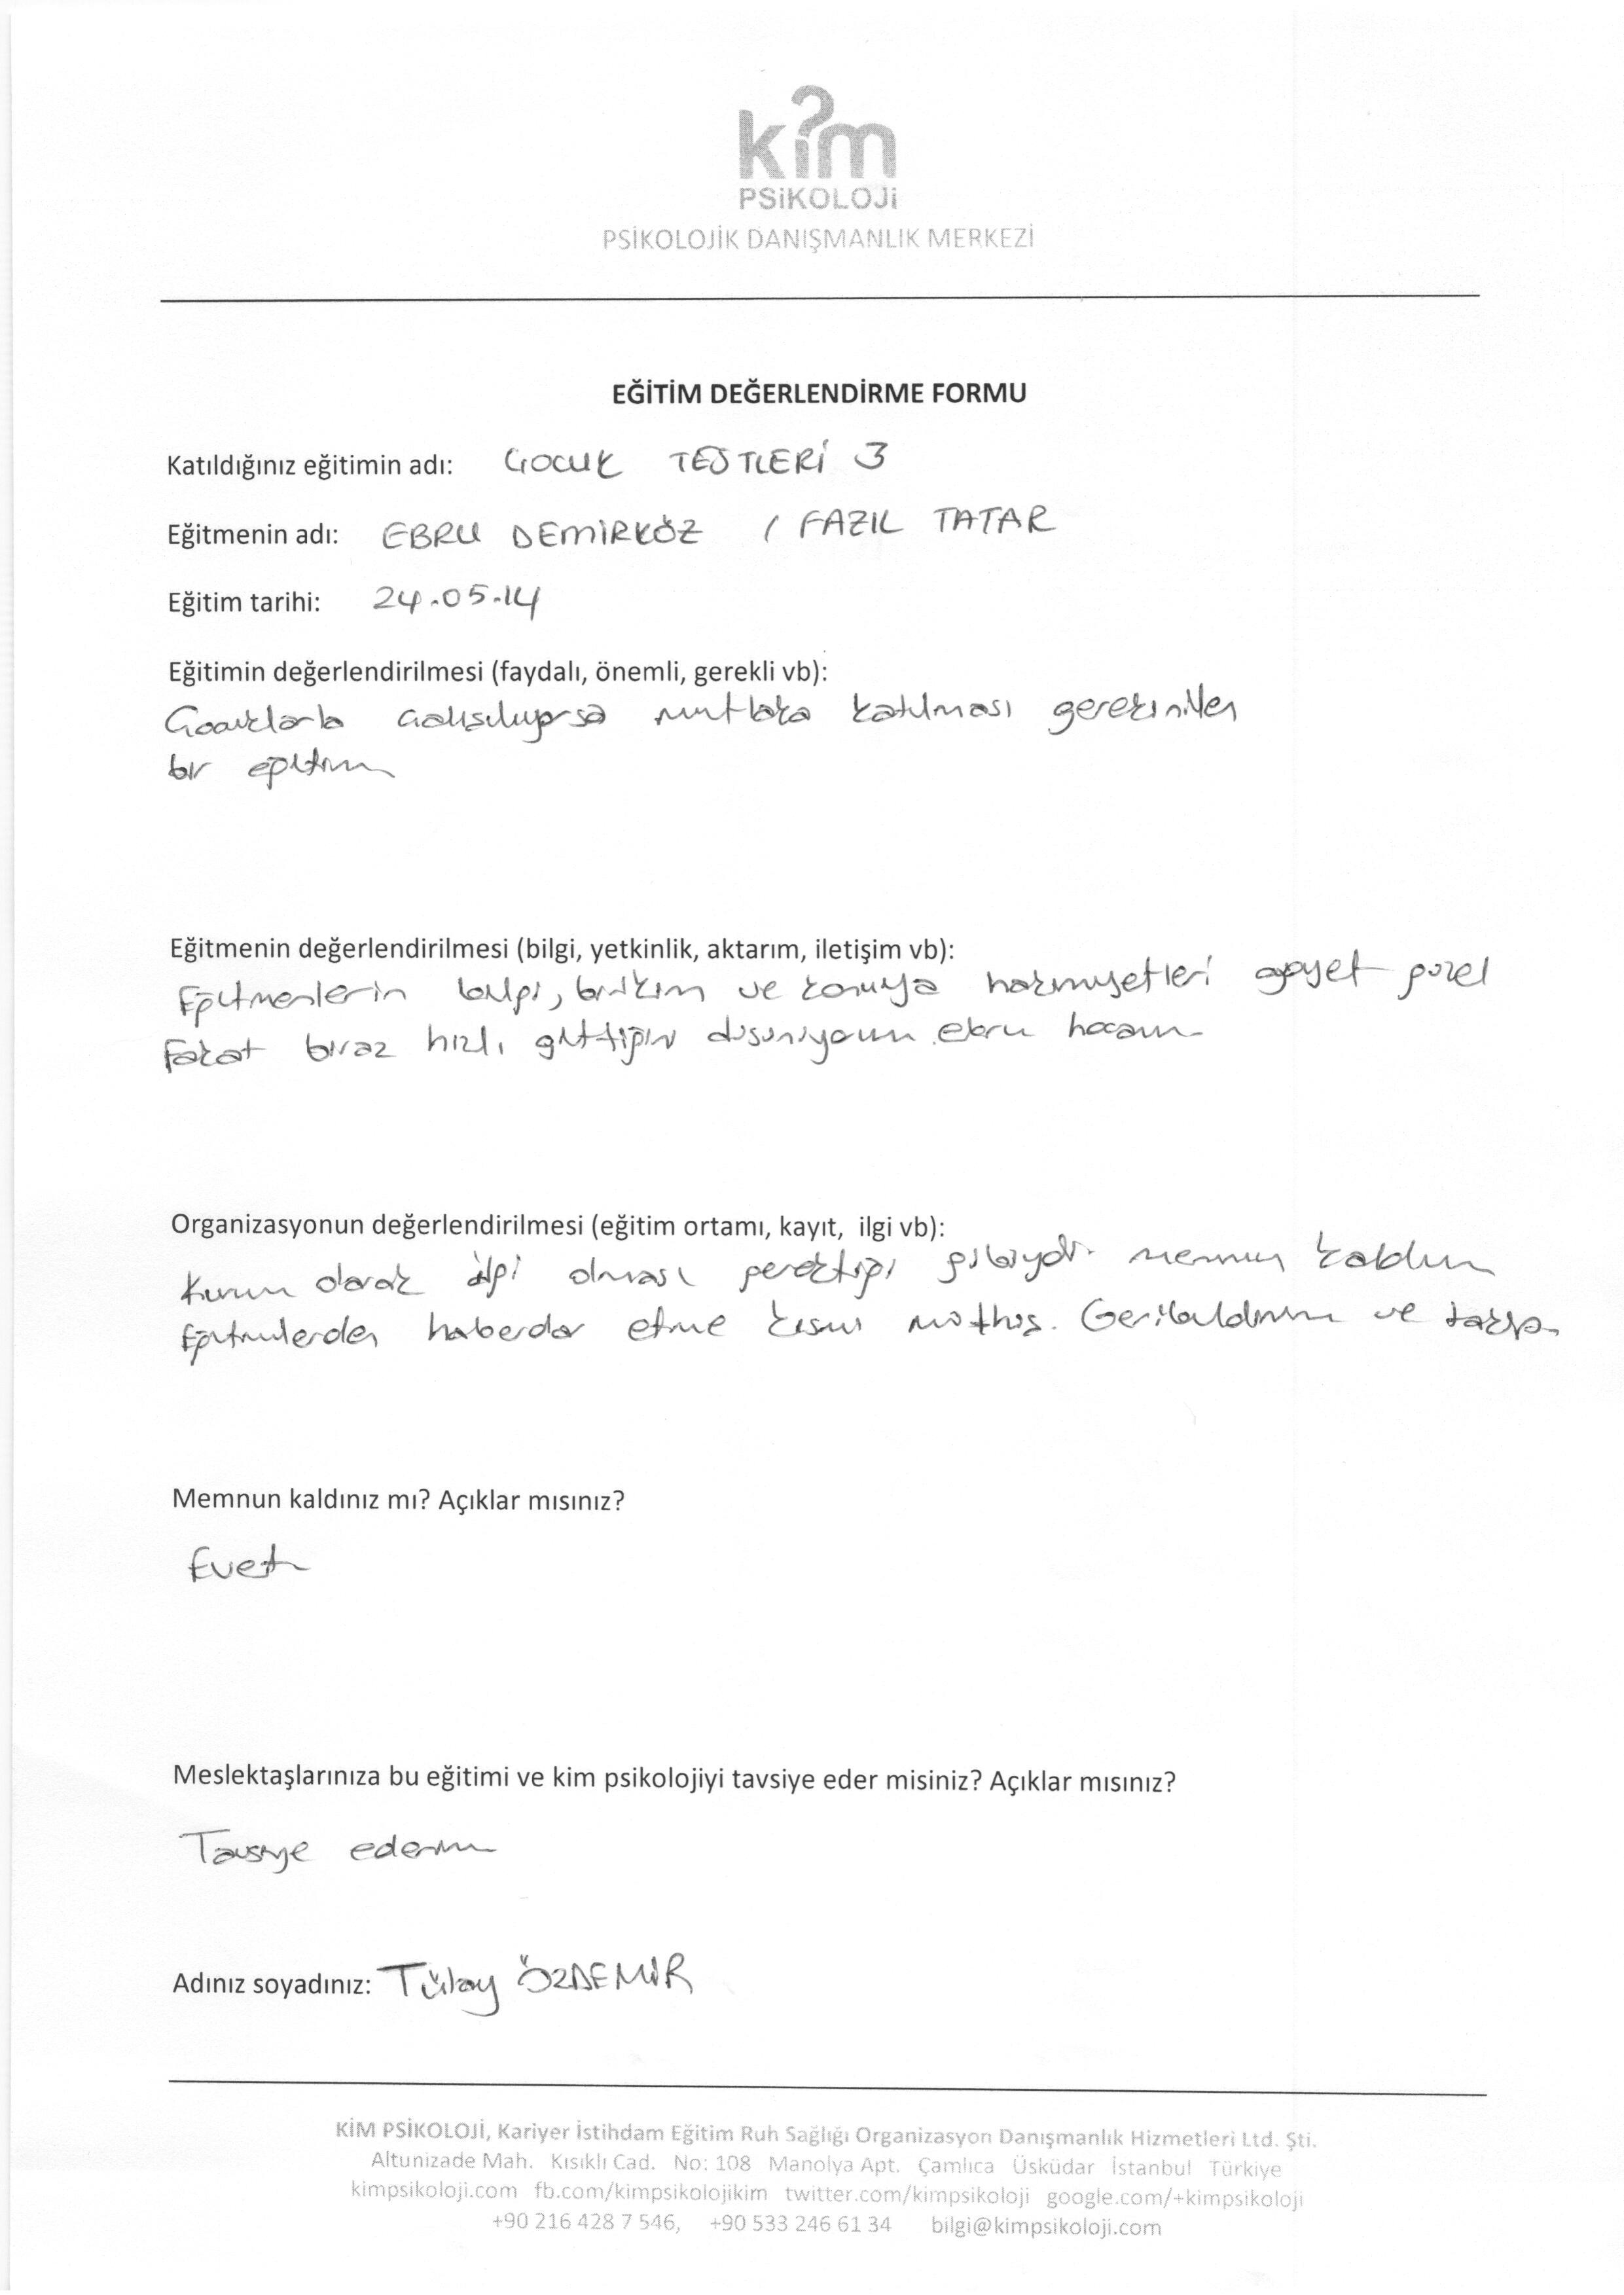 kim
PSiKOLOJi
PSİKOLOJİK DANIŞMANLIK MERKEZİ
EĞİTİM DEĞERLENDİRME FORMU
Katıldığınız eğitimin adı: ÇOCUK TESTLERİ 3
Eğitmenin adı: EBRU DEMİRKÖZ / FAZIL TATAR
Eğitim tarihi: 24.05.14
Eğitimin değerlendirilmesi (faydalı, önemli, gerekli vb):
Çocuklarla çalışılıyorsa mutlaka katılması gerekinilen
bir eğitim
Eğitmenin değerlendirilmesi (bilgi, yetkinlik, aktarım, iletişim vb):
Eğitmenlerin bilgi, birikim ve konuya hakimiyetleri gayet güzel
Fakat biraz hızlı gittiğini düşünüyorum ebru hocam
Organizasyonun değerlendirilmesi (eğitim ortamı, kayıt, ilgi vb):
Kurum olarak ilgi olması gerektiği gibiydi. memnun kaldım
Eğitimlerden haberdar etme kısmı müthiş. Geribildirim ve takip.
Memnun kaldınız mı? Açıklar mısınız?
Evet
Meslektaşlarınıza bu eğitimi ve kim psikolojiyi tavsiye eder misiniz? Açıklar mısınız?
Tavsiye ederim
Adınız soyadınız: Tülay ÖZDEMİR
KİM PSİKOLOJİ, Kariyer İstihdam Eğitim Ruh Sağlığı Organizasyon Danışmanlık Hizmetleri Ltd. Şti.
Altunizade Mah. Kısıklı Cad. No: 108 Manolya Apt. Çamlıca Üsküdar İstanbul Türkiye
kimpsikoloji.com fb.com/kimpsikolojikim twitter.com/kimpsikoloji google.com/+kimpsikoloji
+90 216 428 7 546, +90 533 246 61 34 bilgi@kimpsikoloji.com